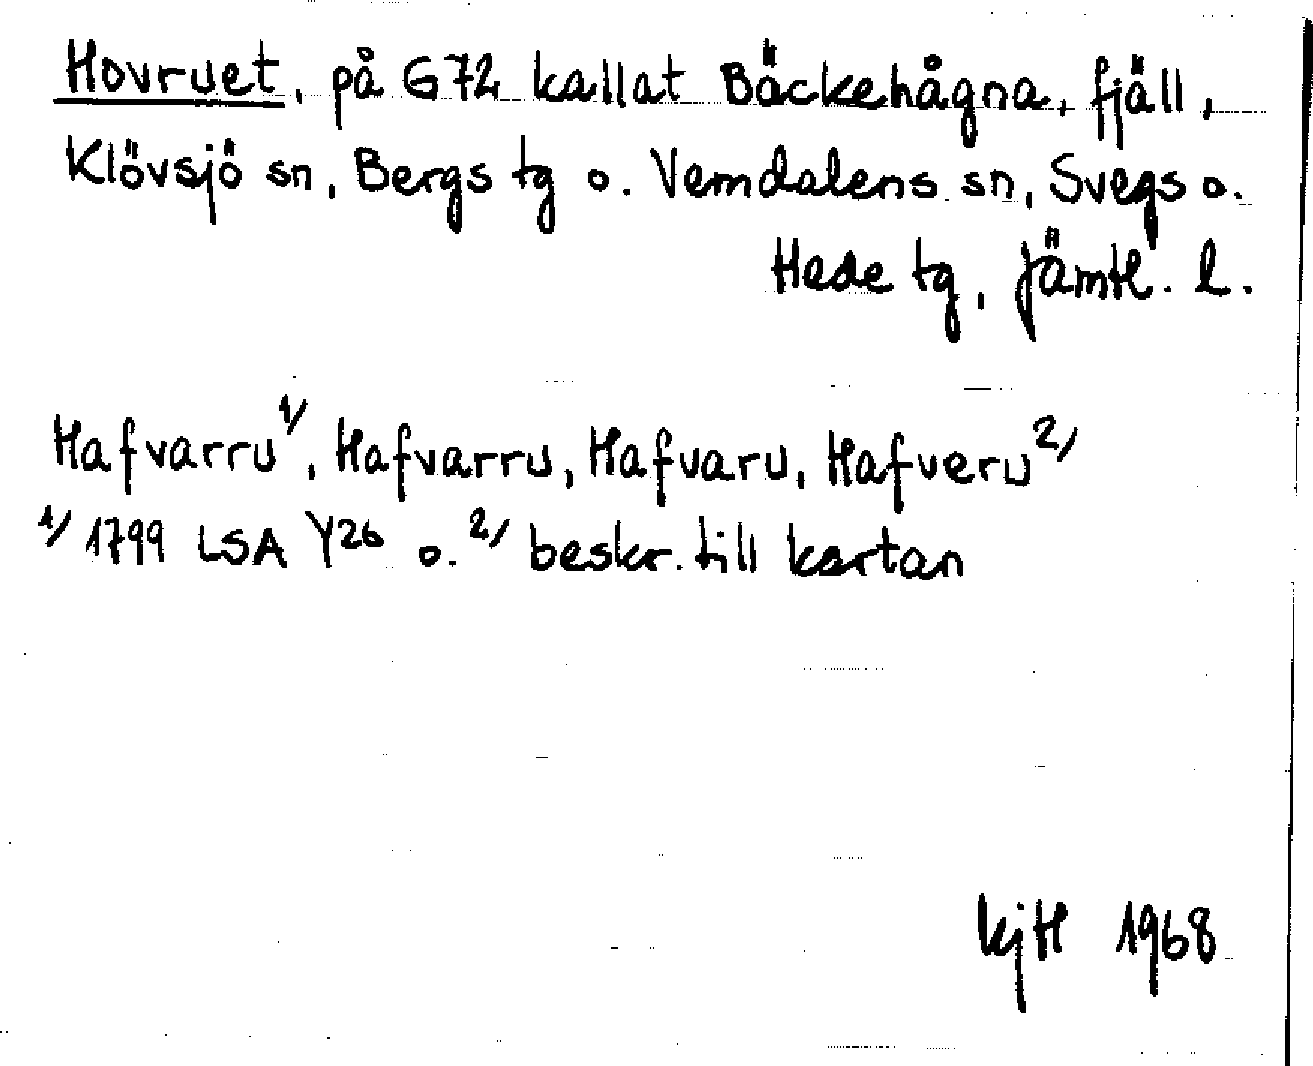 Hovruet, på G72 kallat Bäckehågna, fjäll,
Klövsjö sn, Bergs tg o. Vemdalens sn, Svegs o.
Hede tg, Jämtl. l.
Hafvarru 1/, Hafvarru, Hafvaru, Hafveru 2/
1/ 1799 LSA Y26 o. 2/ beskr. till kartan
kjH 1968